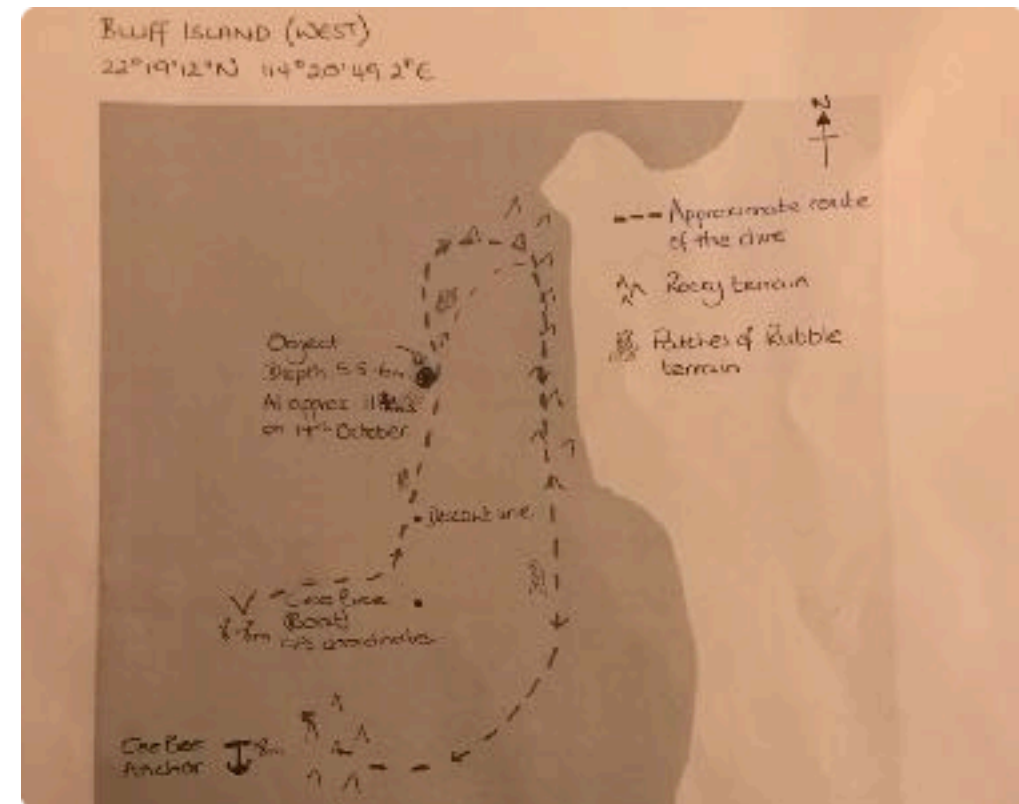 BLUFF ISLAND (WEST)
22°19'12"N 114°20'49.2"E
N
Approximate route
of the dive
Rocky terrain
Patches of Rubble
terrain
Object
Depth 5.5-6m
At approx
on 14th October
Descent line
(Boat)
GPS coordinates
Cee Bee
Anchor
8m